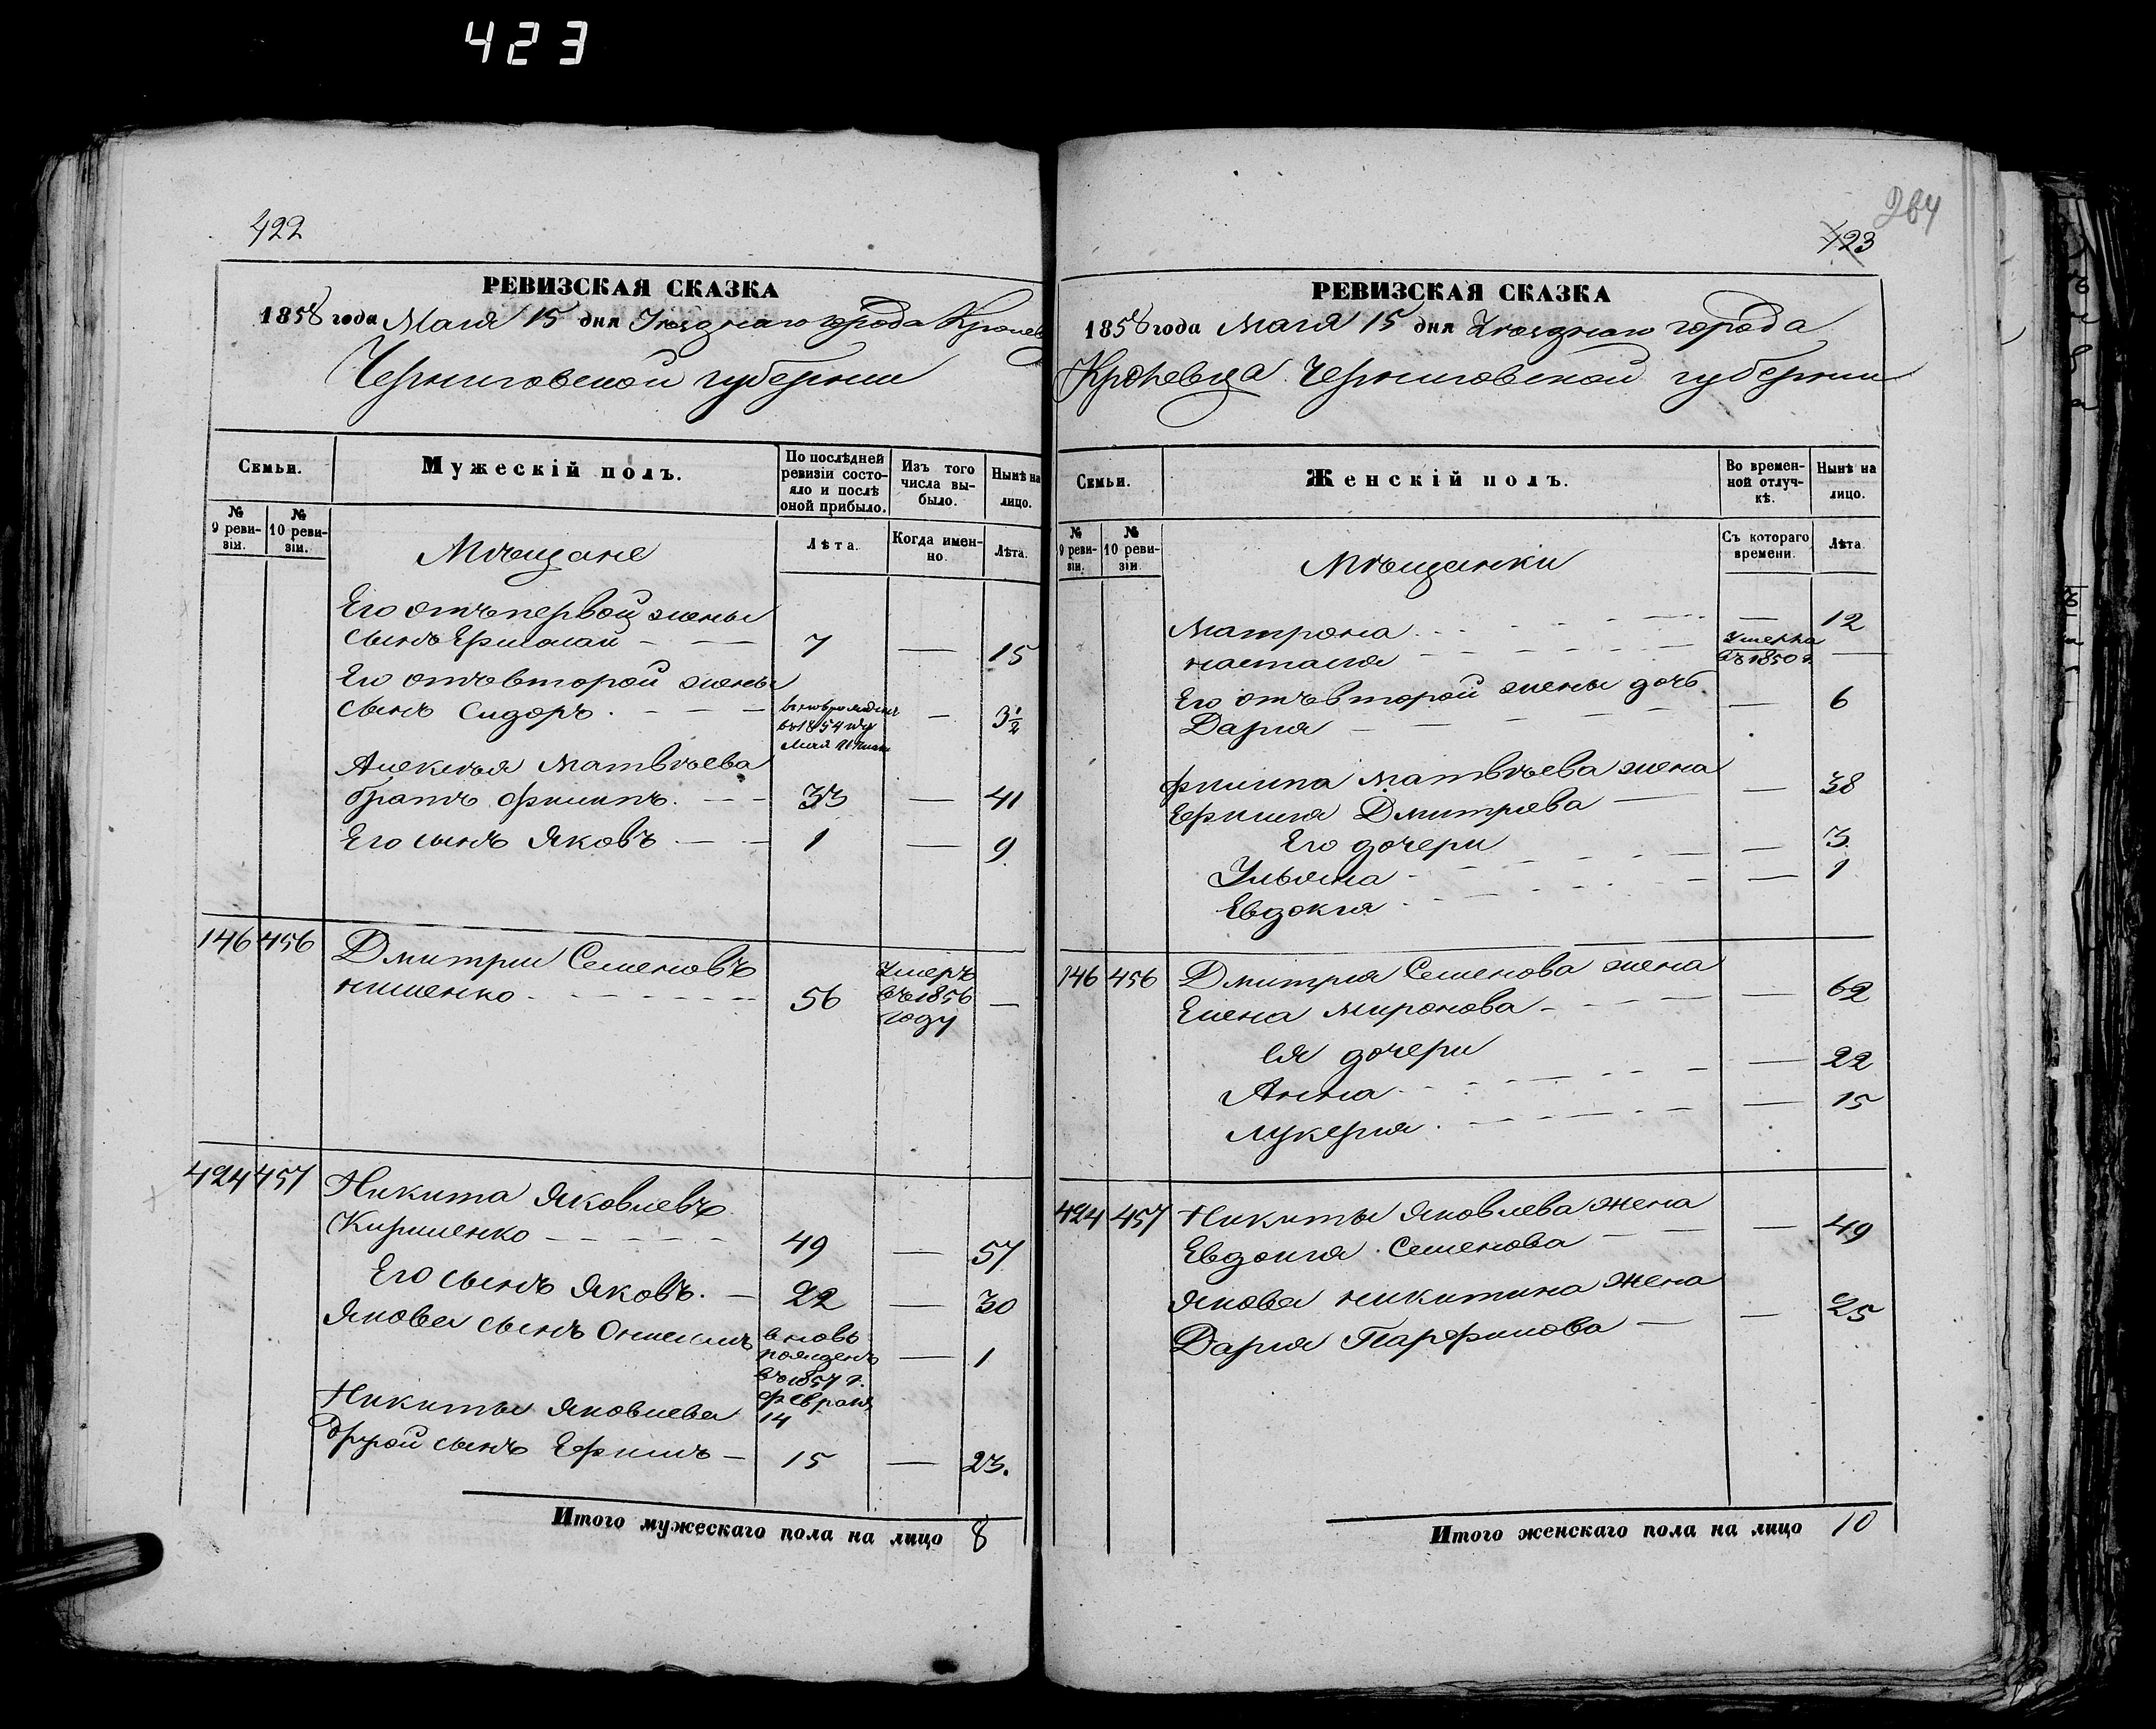 423
422
РЕВИЗСКАЯ СКАЗКА
1858 года Мая 15 дня Уѣзднаго города Кролев
Черниговской губернии
Семьи.
Мужескій полъ.
По послѣдней ревизіи состояло и послѣ оной прибыло.
Изъ того числа выбыло.
Нынѣ на лицо.
№ 9 ревизіи.
№ 10 ревизіи.
Мѣщане
Лѣта.
Когда именно.
Лѣта.
Его отъ первой жены
сынъ Ермолай - — 7 — 15
Его отъ второй жены
сынъ Сидоръ. - - - вновь рожденъ — 3½
въ 1854 году
Мая
Алексѣя Матвѣева
братъ Филипъ. - - - 33 — 41
Его сынъ Яковъ - - - 1 — 9
146 456 Дмитрий Семеновъ Умеръ
- - - 56 въ 1856 —
году
424 457 Никита Яковлевъ
Кириленко - - - - - 49 — 57
Его сынъ Яковъ. - 22 — 30
Якова сынъ Онисимъ вновь
рожденъ — 1
въ 1857 г.
февраля
14
Никиты Яковлева
другой сынъ Ефимъ - 15 — 23.
Итого мужескаго пола на лицо 8
264
423
РЕВИЗСКАЯ СКАЗКА
1858 года Мая 15 дня Уѣзднаго города
Кролевца Черниговской губернии
Семьи.
Женскій полъ.
Во временной отлучкѣ.
Нынѣ на лицо.
№ 9 ревизіи.
№ 10 ревизіи.
Мѣщанки
Съ котораго времени.
Лѣта.
Матрона - - - - - — 12
Настасия - - - - - Умерла въ 1850 г. —
Его отъ второй жены дочь — 6
Дария - - - -
Филипа Матвѣева жена — 38
Дмитриева -
Его дочери
Ульяна - - - - - — 3.
Евдокия - - - - - — 1
146 456 Дмитрия Семенова жена
Елена Миронова - - - - — 62
Ея дочери
Анна - - - - - — 22
Лукерия - - - - - — 15
424 457 Никиты Яковлева жена
Евдокия Семенова - - — 49
Якова Никитина жена
Дария Парфинова - — 25
Итого женскаго пола на лицо 10